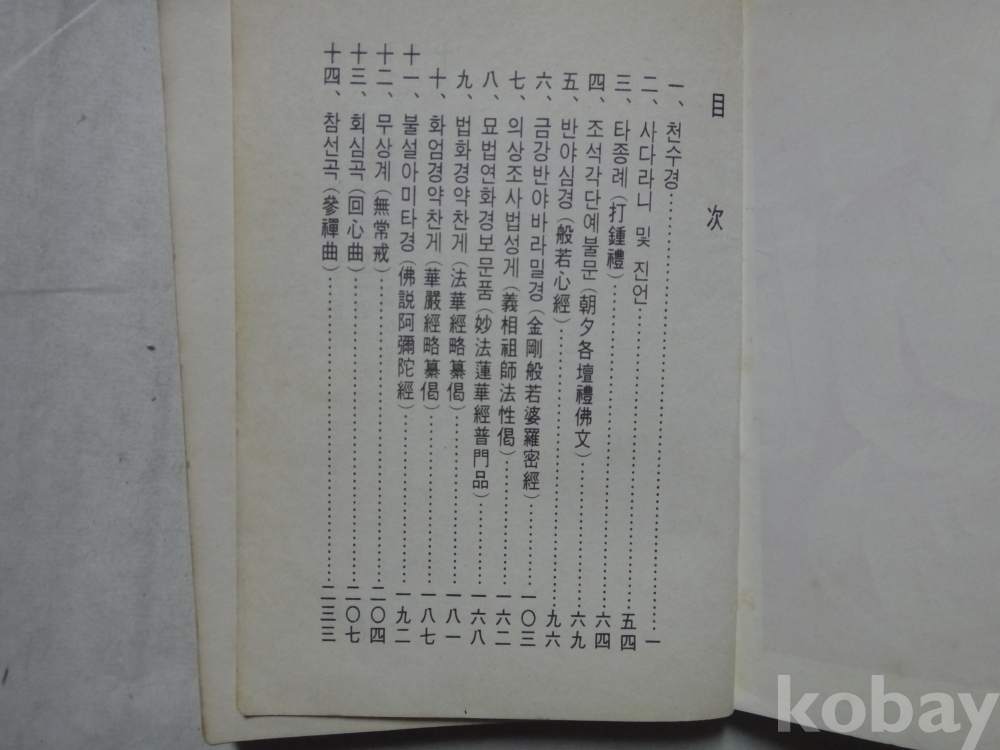 目 次
一、천수경……………………一
二、사다라니 및 진언……………………五四
三、타종례(打鍾禮)……………………六四
四、조석각단예불문(朝夕各壇禮佛文)……………………六九
五、반야심경(般若心經)……………………九六
六、금강반야바라밀경(金剛般若婆羅密經)……………………一〇三
七、의상조사법성게(義相祖師法性偈)……………………一六二
八、묘법연화경보문품(妙法蓮華經普門品)……………………一六八
九、법화경약찬게(法華經略纂偈)……………………一八一
十、화엄경약찬게(華嚴經略纂偈)……………………一八七
十一、불설아미타경(佛説阿彌陀經)……………………一九二
十二、무상계(無常戒)……………………二〇四
十三、회심곡(回心曲)……………………二〇七
十四、참선곡(參禪曲)……………………二三三
kobay